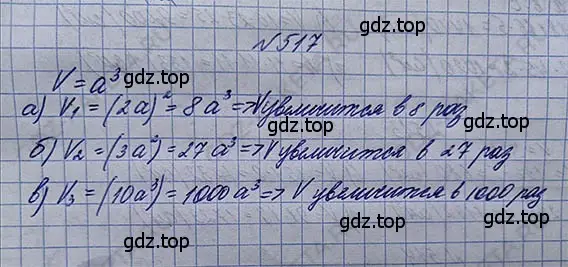 gdz.top
№517
gdz.top
V = a³
gdz.top
а) V₁ = (2a)² = 8a³ => V увеличится в 8 раз
gdz.top
gdz.top
б) V₂ = (3a²) = 27a³ => V увеличится в 27 раз
gdz.top
в) V₃ = (10a³) = 1000a³ => V увеличится в 1000 раз
gdz.top
gdz.top
gdz.top